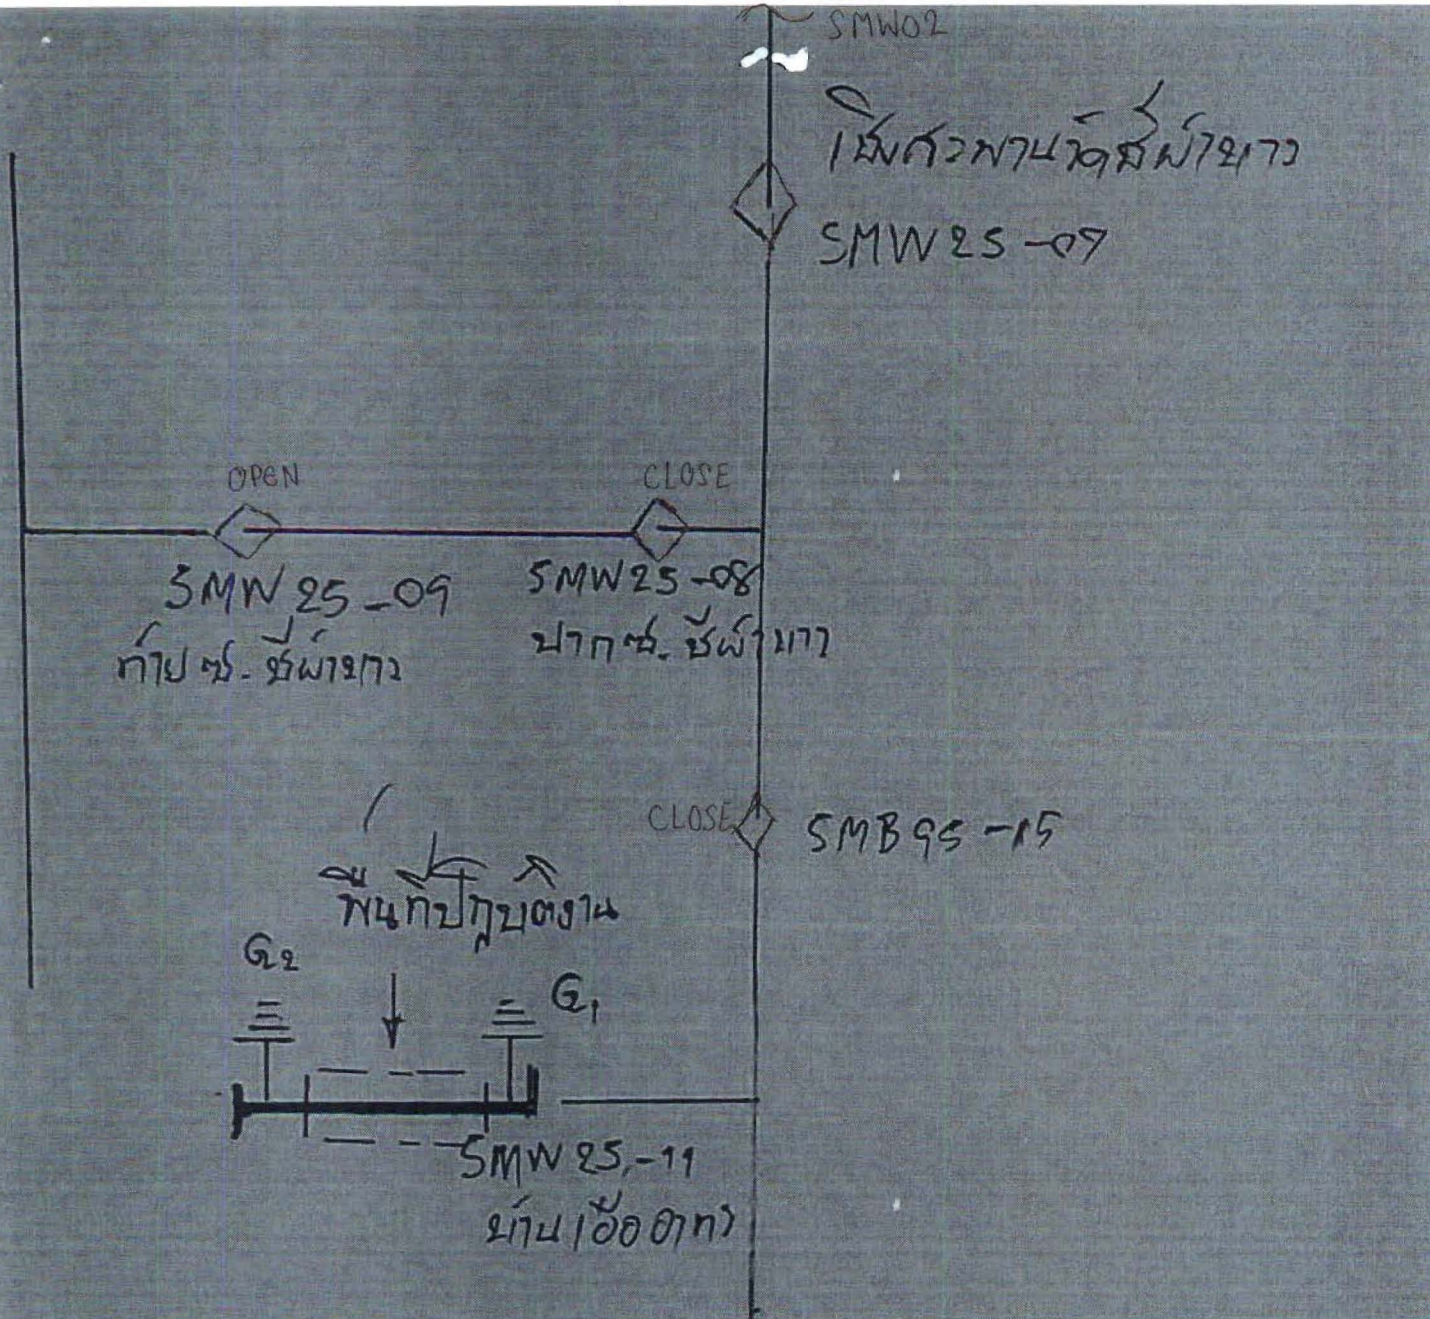 SMW02
เชิงสะพานวัดสีผ้าขาว
SMW25-07
OPEN
CLOSE
SMW25-09
SMW25-08
ท้ายซ.ชีผ้าขาว
ปากซ.ชีผ้าขาว
CLOSE
SMB95-15
พื้นที่ปฏิบัติงาน
G2
G1
SMW25-11
บ้านเอื้ออาทร